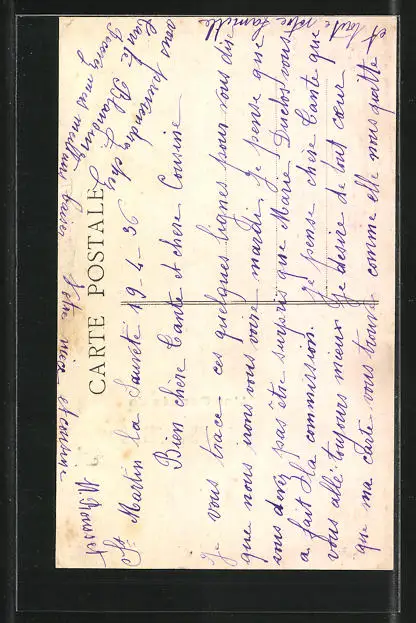 CARTE POSTALE
St Martin la Sauveté 19-4-36
Bien chère Tante et chère Cousine
Je vous trace ces quelques lignes pour vous dire
que nous irons vous voire mardi. Je pense que
vous devez pas être surpris que Marie Duclos vous
a fait la commission. Je pense chère Tante que
vous allé toujours mieux je désire de tout cœur
que ma carte vous trouve comme elle nous quitte
et toute votre famille
vous chez
Recevez mes meilleurs baisers
Votre nièce et cousine